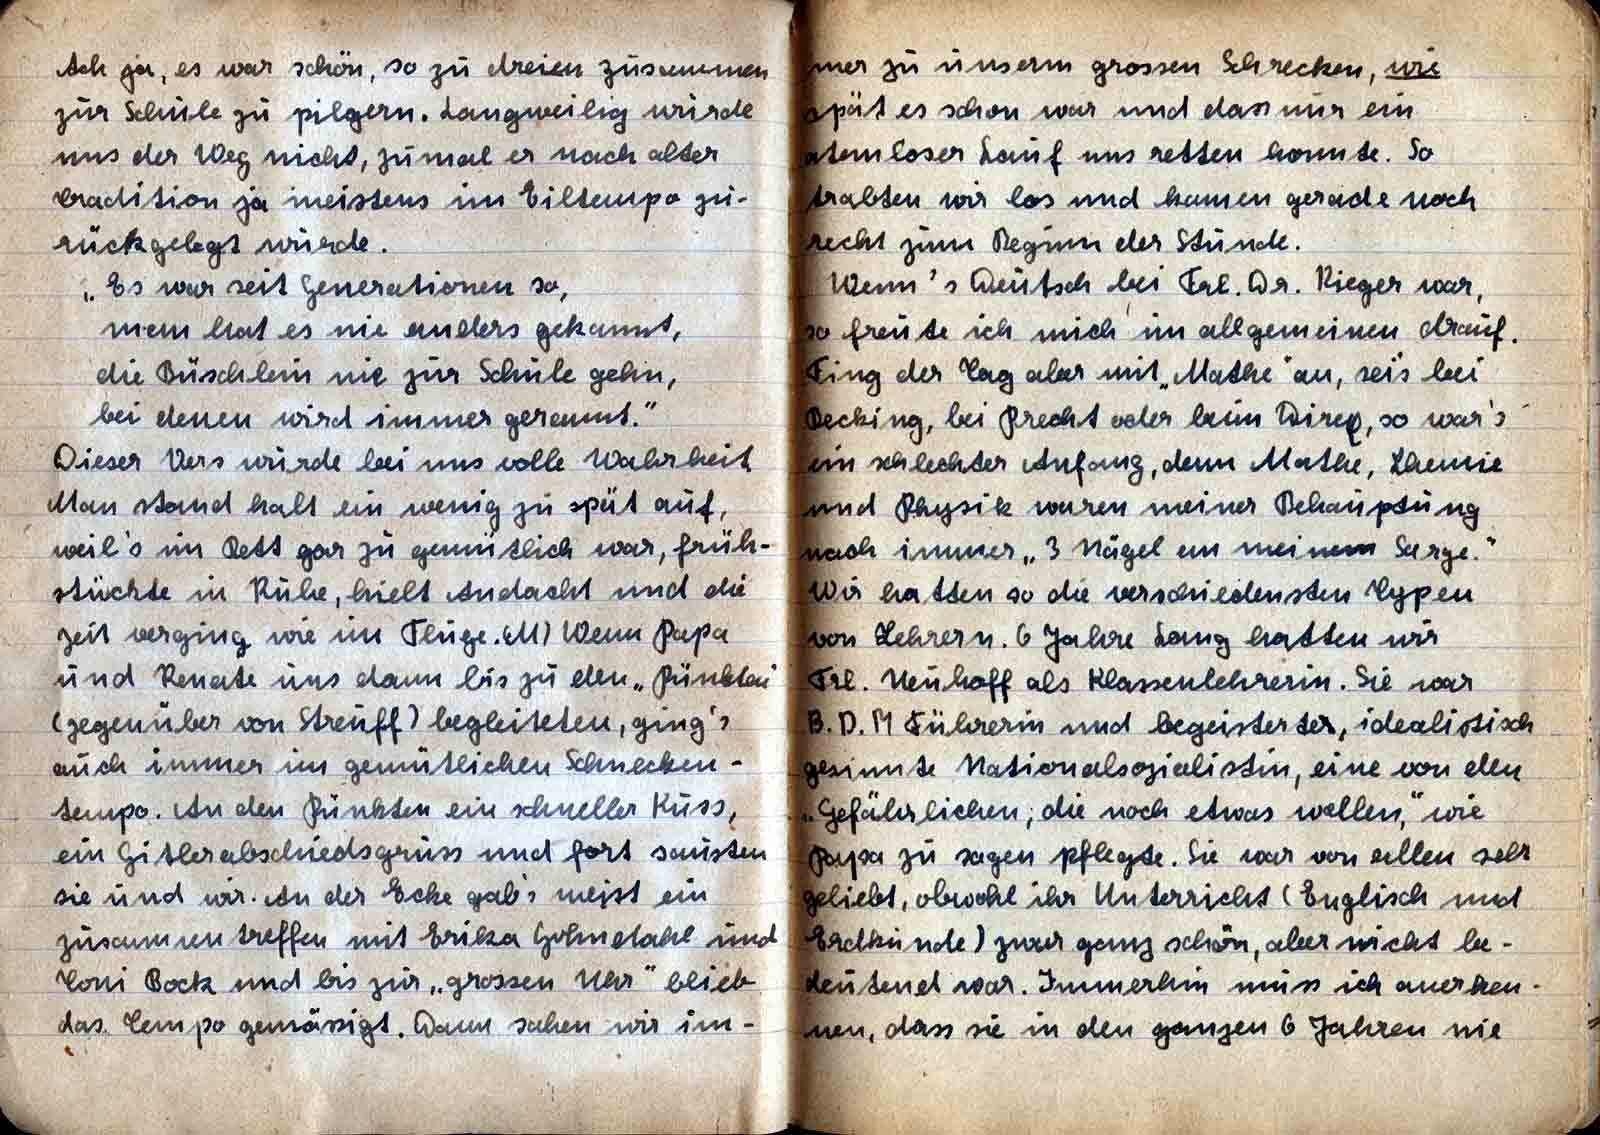 Ach ja, es war schön, so zu dreien zusammen
zur Schule zu pilgern. Langweilig wurde
uns der Weg nicht, zumal er nach alter
Tradition ja meistens im Eiltempo zu-
rückgelegt wurde.
„Es war seit Generationen so,
man hat es nie anders gekannt,
die Büschlein nie zur Schule gehn,
bei denen wird immer gerannt.“
Dieser Vers wurde bei uns volle Wahrheit.
Man stand halt ein wenig zu spät auf,
weil's im Bett gar zu gemütlich war, früh-
stückte in Ruhe, hielt Andacht und die
Zeit verging wie im Fluge. (M) Wenn Papa
und Renate uns dann bis zu den „Pünkten
(gegenüber von Streuff) begleiteten, ging's
auch immer im gemütlichen Schnecken-
tempo. An den Pünkten ein schneller Kuss,
ein Hitlerabschiedsgruss und fort sausten
sie und wir. An der Ecke gab's meist ein
zusammentreffen mit Erika und
Toni Bock und bis zur „grossen Uhr“ blieb
das Tempo gemässigt. Dann sahen wir im-
mer zu unserm grossen Schrecken, wie
spät es schon war und dass nur ein
atemloser Lauf uns retten konnte. So
trabten wir los und kamen gerade noch
recht zum Beginn der Stunde.
Wenn's Deutsch bei Frl. Dr. Rieger war,
so freute ich mich im allgemeinen drauf.
Fing der Tag aber mit „Mathe“ an, sei's bei
Becking, bei Precht oder beim Direx, so war's
ein schlechter Anfang, denn Mathe, Chemie
und Physik waren meiner Behauptung
nach immer „3 Nägel an meinem Sarge.“
Wir hatten so die verschiedensten Typen
von Lehrern. 6 Jahre lang hatten wir
Frl. Neuhoff als Klassenlehrerin. Sie war
B.D.M Führerin und begeisterter, idealistisch
gesinnte Nationalsozialistin, eine von den
„Gefährlichen, die noch etwas wollen,“ wie
Papa zu sagen pflegte. Sie war von allen sehr
geliebt, obwohl ihr Unterricht (Englisch und
Erdkunde) zwar ganz schön, aber nicht be-
deutend war. Immerhin muss ich anerken-
nen, dass sie in den ganzen 6 Jahren nie